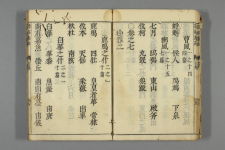 曹風一之十四
蜉蝣 候人 鳲鳩 下泉
豳風一之十五
七月 鴟鴞 東山 破斧
伐柯 九罭 狼跋
小雅二
鹿鳴之什二之一
鹿鳴 四牡 皇皇者華 常棣
伐木 天保 采薇 出車
杕杜 南陔
白華之什二之二
白華 華黍 魚麗 由庚
南有嘉魚 崇丘 南山有臺 由儀